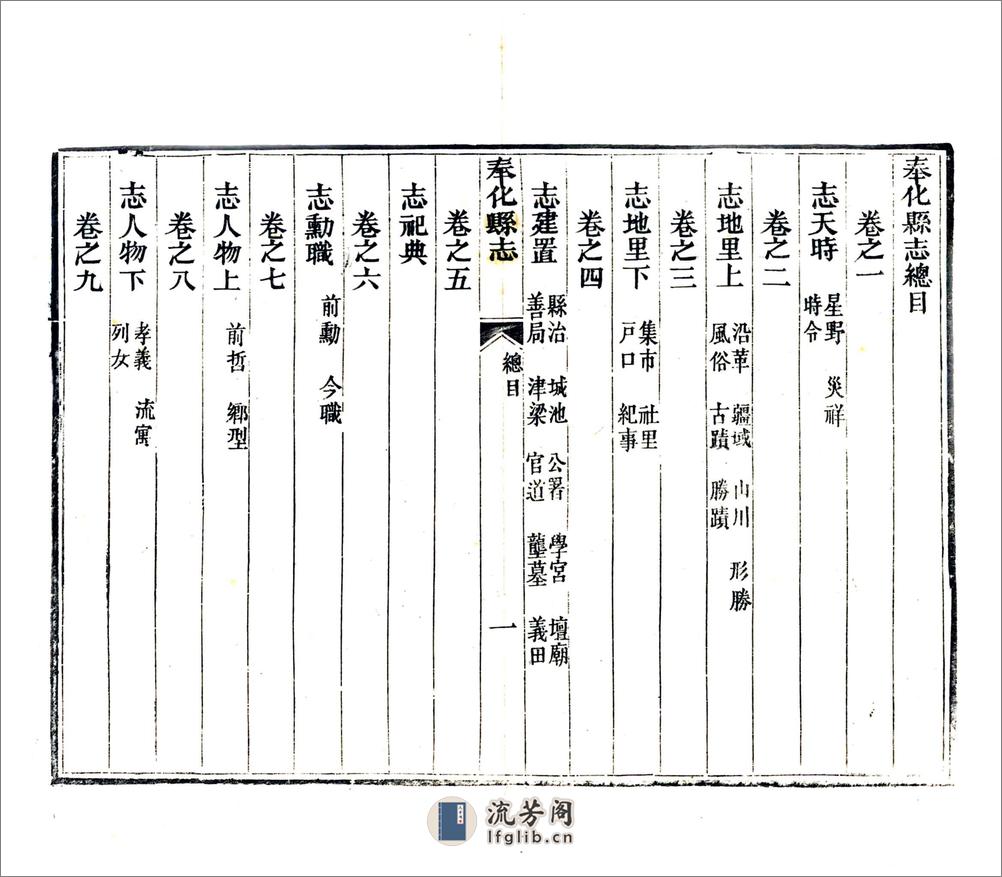 奉化縣志總目
卷之一
志天時 星野 災祥
時令
卷之二
志地里上 沿革 疆域 山川 形勝
風俗 古蹟 勝蹟
卷之三
志地里下 集市 社里
戶口 紀事
卷之四
志建置 縣治 城池 公署 學宮 壇廟
善局 津梁 官道 壟墓 義田
奉化縣志 總目 一
卷之五
志祀典
卷之六
志勳職 前勳 今職
卷之七
志人物上 前哲 鄉型
卷之八
志人物下 孝義 流寓
列女
卷之九
流芳阁
lfglib.cn